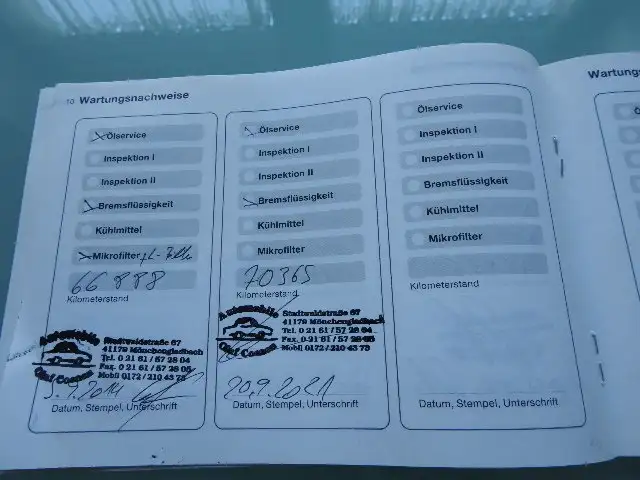 10 Wartungsnachweise
Ölservice
Inspektion I
Inspektion II
Bremsflüssigkeit
Kühlmittel
Mikrofilter
66888
Kilometerstand
Automobile
Stadtwaldstraße 67
41179 Mönchengladbach
Tel. 0 21 61 / 57 28 04
Fax. 0 21 61 / 57 28 05
Mobil 0172 / 210 43 73
Olaf
2014
Datum, Stempel, Unterschrift
Ölservice
Inspektion I
Inspektion II
Bremsflüssigkeit
Kühlmittel
Mikrofilter
70365
Kilometerstand
Automobile
Stadtwaldstraße 67
41179 Mönchengladbach
Tel. 0 21 61 / 57 28 04
Fax. 0 21 61 / 57 28 05
Mobil 0172 / 210 43 73
Olaf
20.9.2021
Datum, Stempel, Unterschrift
Ölservice
Inspektion I
Inspektion II
Bremsflüssigkeit
Kühlmittel
Mikrofilter
Kilometerstand
Datum, Stempel, Unterschrift
Wartungs